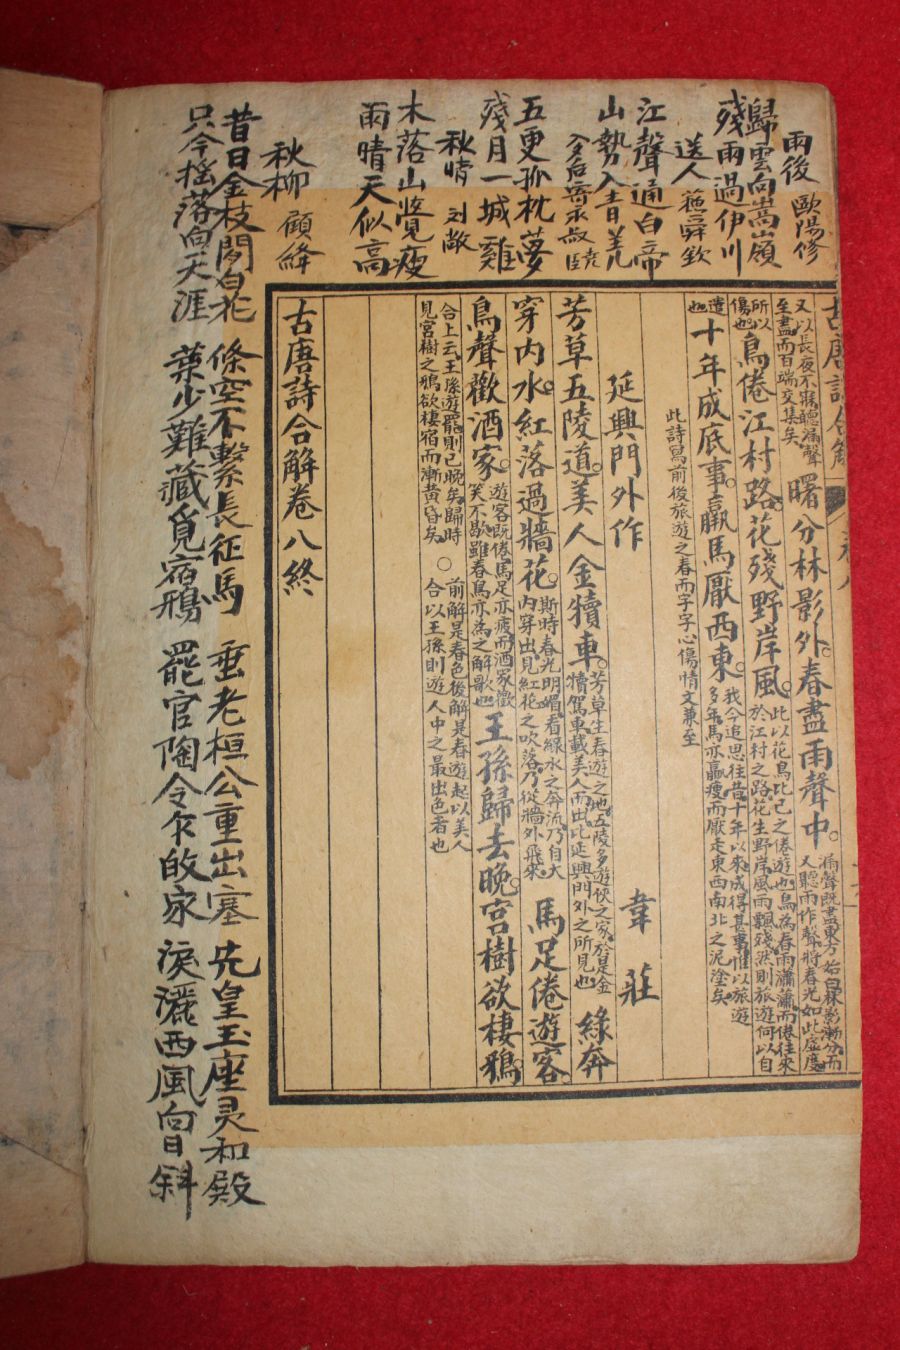 雨後 歐陽修
歸雲向嵩嶺
殘雨過伊川
送人 蘓舜欽
江聲通白帝
山勢入青羌
寄永叔
五更孤枕夢
殘月一城雞
秋晴 刘敞
木落山覺瘦
雨晴天似高
秋柳 顧絳
昔日金枝間白花 條空不繫長征馬 垂老桓公重出塞 先皇玉座灵和殿
只今搖落向天涯 葉少難藏覓宿鴉 罷官陶令乍家 淚灑西風向日斜
古唐詩合解 卷八
又以長夜不寐聽漏聲
至盡而百端交集矣
曙分林影外。春盡雨聲中。
漏聲既盡東方始白林影漸分而
又聽雨作聲將春光如此虛度
所以
傷也
鳥倦江村路。花殘野岸風。
此以花鳥比己之倦遊也鳥為春雨瀟瀟而倦往來
於江村之路花生野岸風雨飄殘然則旅遊何以自
遣
也
十年成底事。羸馬厭西東。
我今追思往昔十年以來成得甚事惟以旅遊
多年馬亦羸瘦而厭走東西南北之泥塗矣
此詩寫前後旅遊之春而字字心傷情文兼至
延興門外作 韋莊
芳草五陵道。美人金犢車。
芳草生春遊之地五陵多遊俠之家於是金
犢駕車載美人而出此延興門外之所見也
綠奔
穿內水。紅落過牆花。
斯時春光明媚看綠水之奔流乃自大
內穿出見紅花之吹落乃從牆外飛來
馬足倦遊客。
鳥聲歡酒家。
遊客既倦馬足亦疲而酒家歡
笑不歇雖春鳥亦為之解歌也
王孫歸去晚。宮樹欲棲鴉。
合上云王孫遊罷則已晚矣歸時
見宮樹之鴉欲棲宿而漸黃昏矣
○
前解是春色後解是春遊起以美人
合以王孫則遊人中之最出色者也
古唐詩合解卷八終